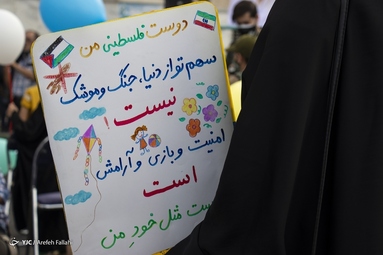 دوست فلسطینی من
سهم تو از دنیا، جنگ و موشک
نیست
امنیت و بازی و آرامش
است
ست مثل خودِ من
YJC / Arefeh Fallah